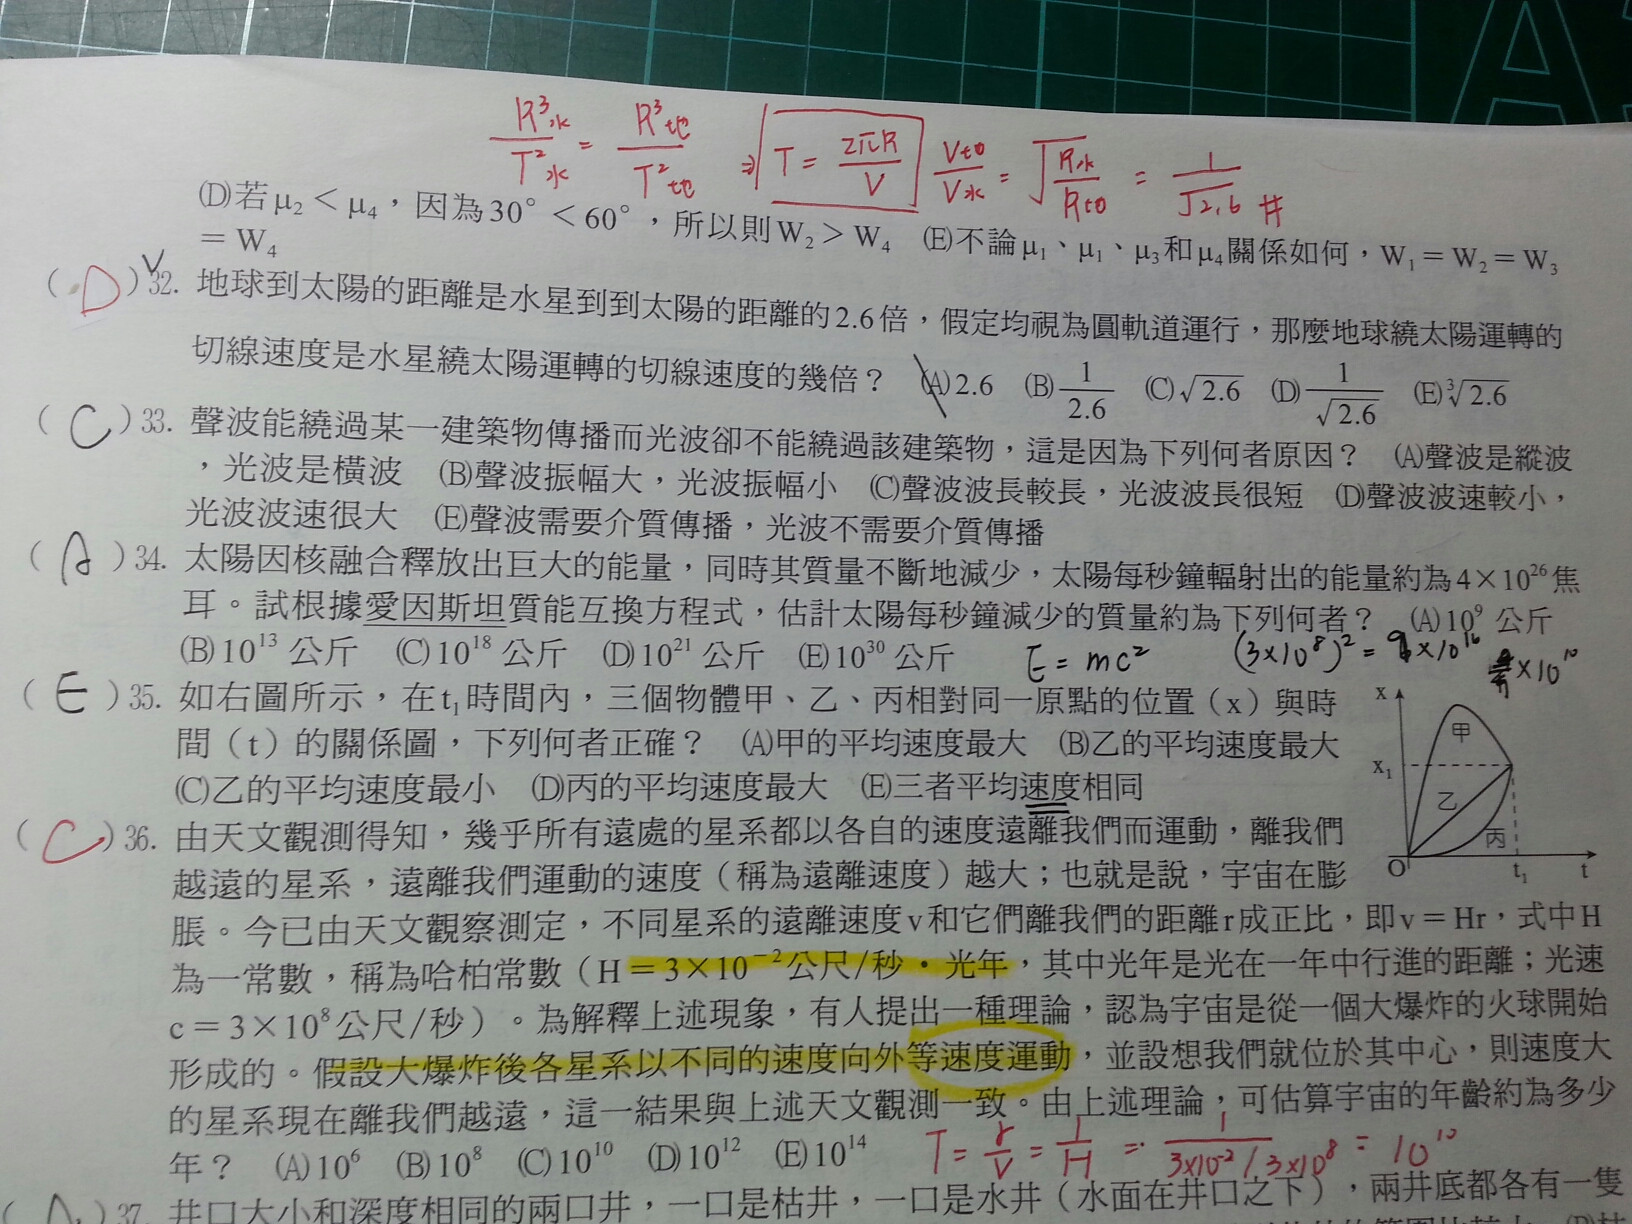 R³水/T²水 = R³地/T²地 ⇒ T = 2πR/V V地/V水 = √R水/R地 = 1/√2.6 #
(D)若μ₂<μ₄,因為30°<60°,所以則W₂>W₄ (E)不論μ₁、μ₁、μ₃和μ₄關係如何,W₁=W₂=W₃
=W₄
(D)32. 地球到太陽的距離是水星到到太陽的距離的2.6倍,假定均視為圓軌道運行,那麼地球繞太陽運轉的
切線速度是水星繞太陽運轉的切線速度的幾倍? (A)2.6 (B)1/2.6 (C)√2.6 (D)1/√2.6 (E)³√2.6
(C)33. 聲波能繞過某一建築物傳播而光波卻不能繞過該建築物,這是因為下列何者原因? (A)聲波是縱波
,光波是橫波 (B)聲波振幅大,光波振幅小 (C)聲波波長較長,光波波長很短 (D)聲波波速較小,
光波波速很大 (E)聲波需要介質傳播,光波不需要介質傳播
(A)34. 太陽因核融合釋放出巨大的能量,同時其質量不斷地減少,太陽每秒鐘輻射出的能量約為4×10²⁶焦
耳。試根據愛因斯坦質能互換方程式,估計太陽每秒鐘減少的質量約為下列何者? (A)10⁹ 公斤
(B)10¹³ 公斤 (C)10¹⁸ 公斤 (D)10²¹ 公斤 (E)10³⁰ 公斤 E=mc² (3×10⁸)²=9×10¹⁶ ×10¹⁰
(E)35. 如右圖所示,在t₁時間內,三個物體甲、乙、丙相對同一原點的位置(x)與時
間(t)的關係圖,下列何者正確? (A)甲的平均速度最大 (B)乙的平均速度最大
(C)乙的平均速度最小 (D)丙的平均速度最大 (E)三者平均速度相同
x
甲
x₁
乙
丙
O
t₁
t
(C)36. 由天文觀測得知,幾乎所有遠處的星系都以各自的速度遠離我們而運動,離我們
越遠的星系,遠離我們運動的速度(稱為遠離速度)越大;也就是說,宇宙在膨
脹。今已由天文觀察測定,不同星系的遠離速度v和它們離我們的距離r成正比,即v=Hr,式中H
為一常數,稱為哈柏常數(H=3×10⁻²公尺/秒・光年,其中光年是光在一年中行進的距離;光速
c=3×10⁸公尺/秒)。為解釋上述現象,有人提出一種理論,認為宇宙是從一個大爆炸的火球開始
形成的。假設大爆炸後各星系以不同的速度向外等速度運動,並設想我們就位於其中心,則速度大
的星系現在離我們越遠,這一結果與上述天文觀測一致。由上述理論,可估算宇宙的年齡約為多少
年? (A)10⁶ (B)10⁸ (C)10¹⁰ (D)10¹² (E)10¹⁴ T=r/v=1/H=1/3×10⁻²/3×10⁸=10¹⁰
37. 井口大小和深度相同的兩口井,一口是枯井,一口是水井(水面在井口之下),兩井底都各有一隻